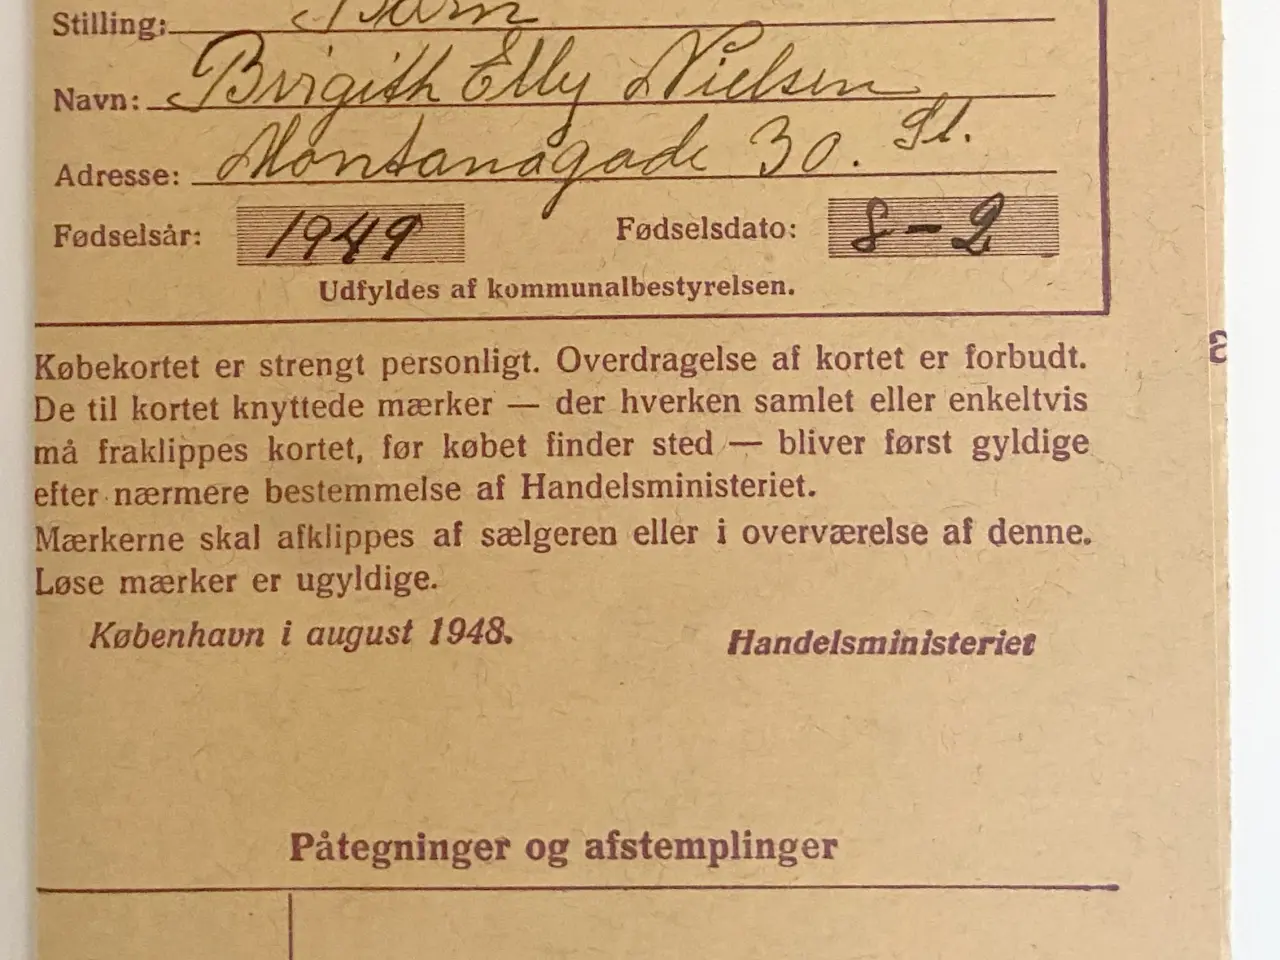 Stilling: Barn
Navn: Brigith Elly Nielsen
Adresse: Montanagade 30. St.
Fødselsår: 1949 Fødselsdato: 8-2
Udfyldes af kommunalbestyrelsen.
Købekortet er strengt personligt. Overdragelse af kortet er forbudt.
De til kortet knyttede mærker — der hverken samlet eller enkeltvis
må fraklippes kortet, før købet finder sted — bliver først gyldige
efter nærmere bestemmelse af Handelsministeriet.
Mærkerne skal afklippes af sælgeren eller i overværelse af denne.
Løse mærker er ugyldige.
København i august 1948. Handelsministeriet
Påtegninger og afstemplinger